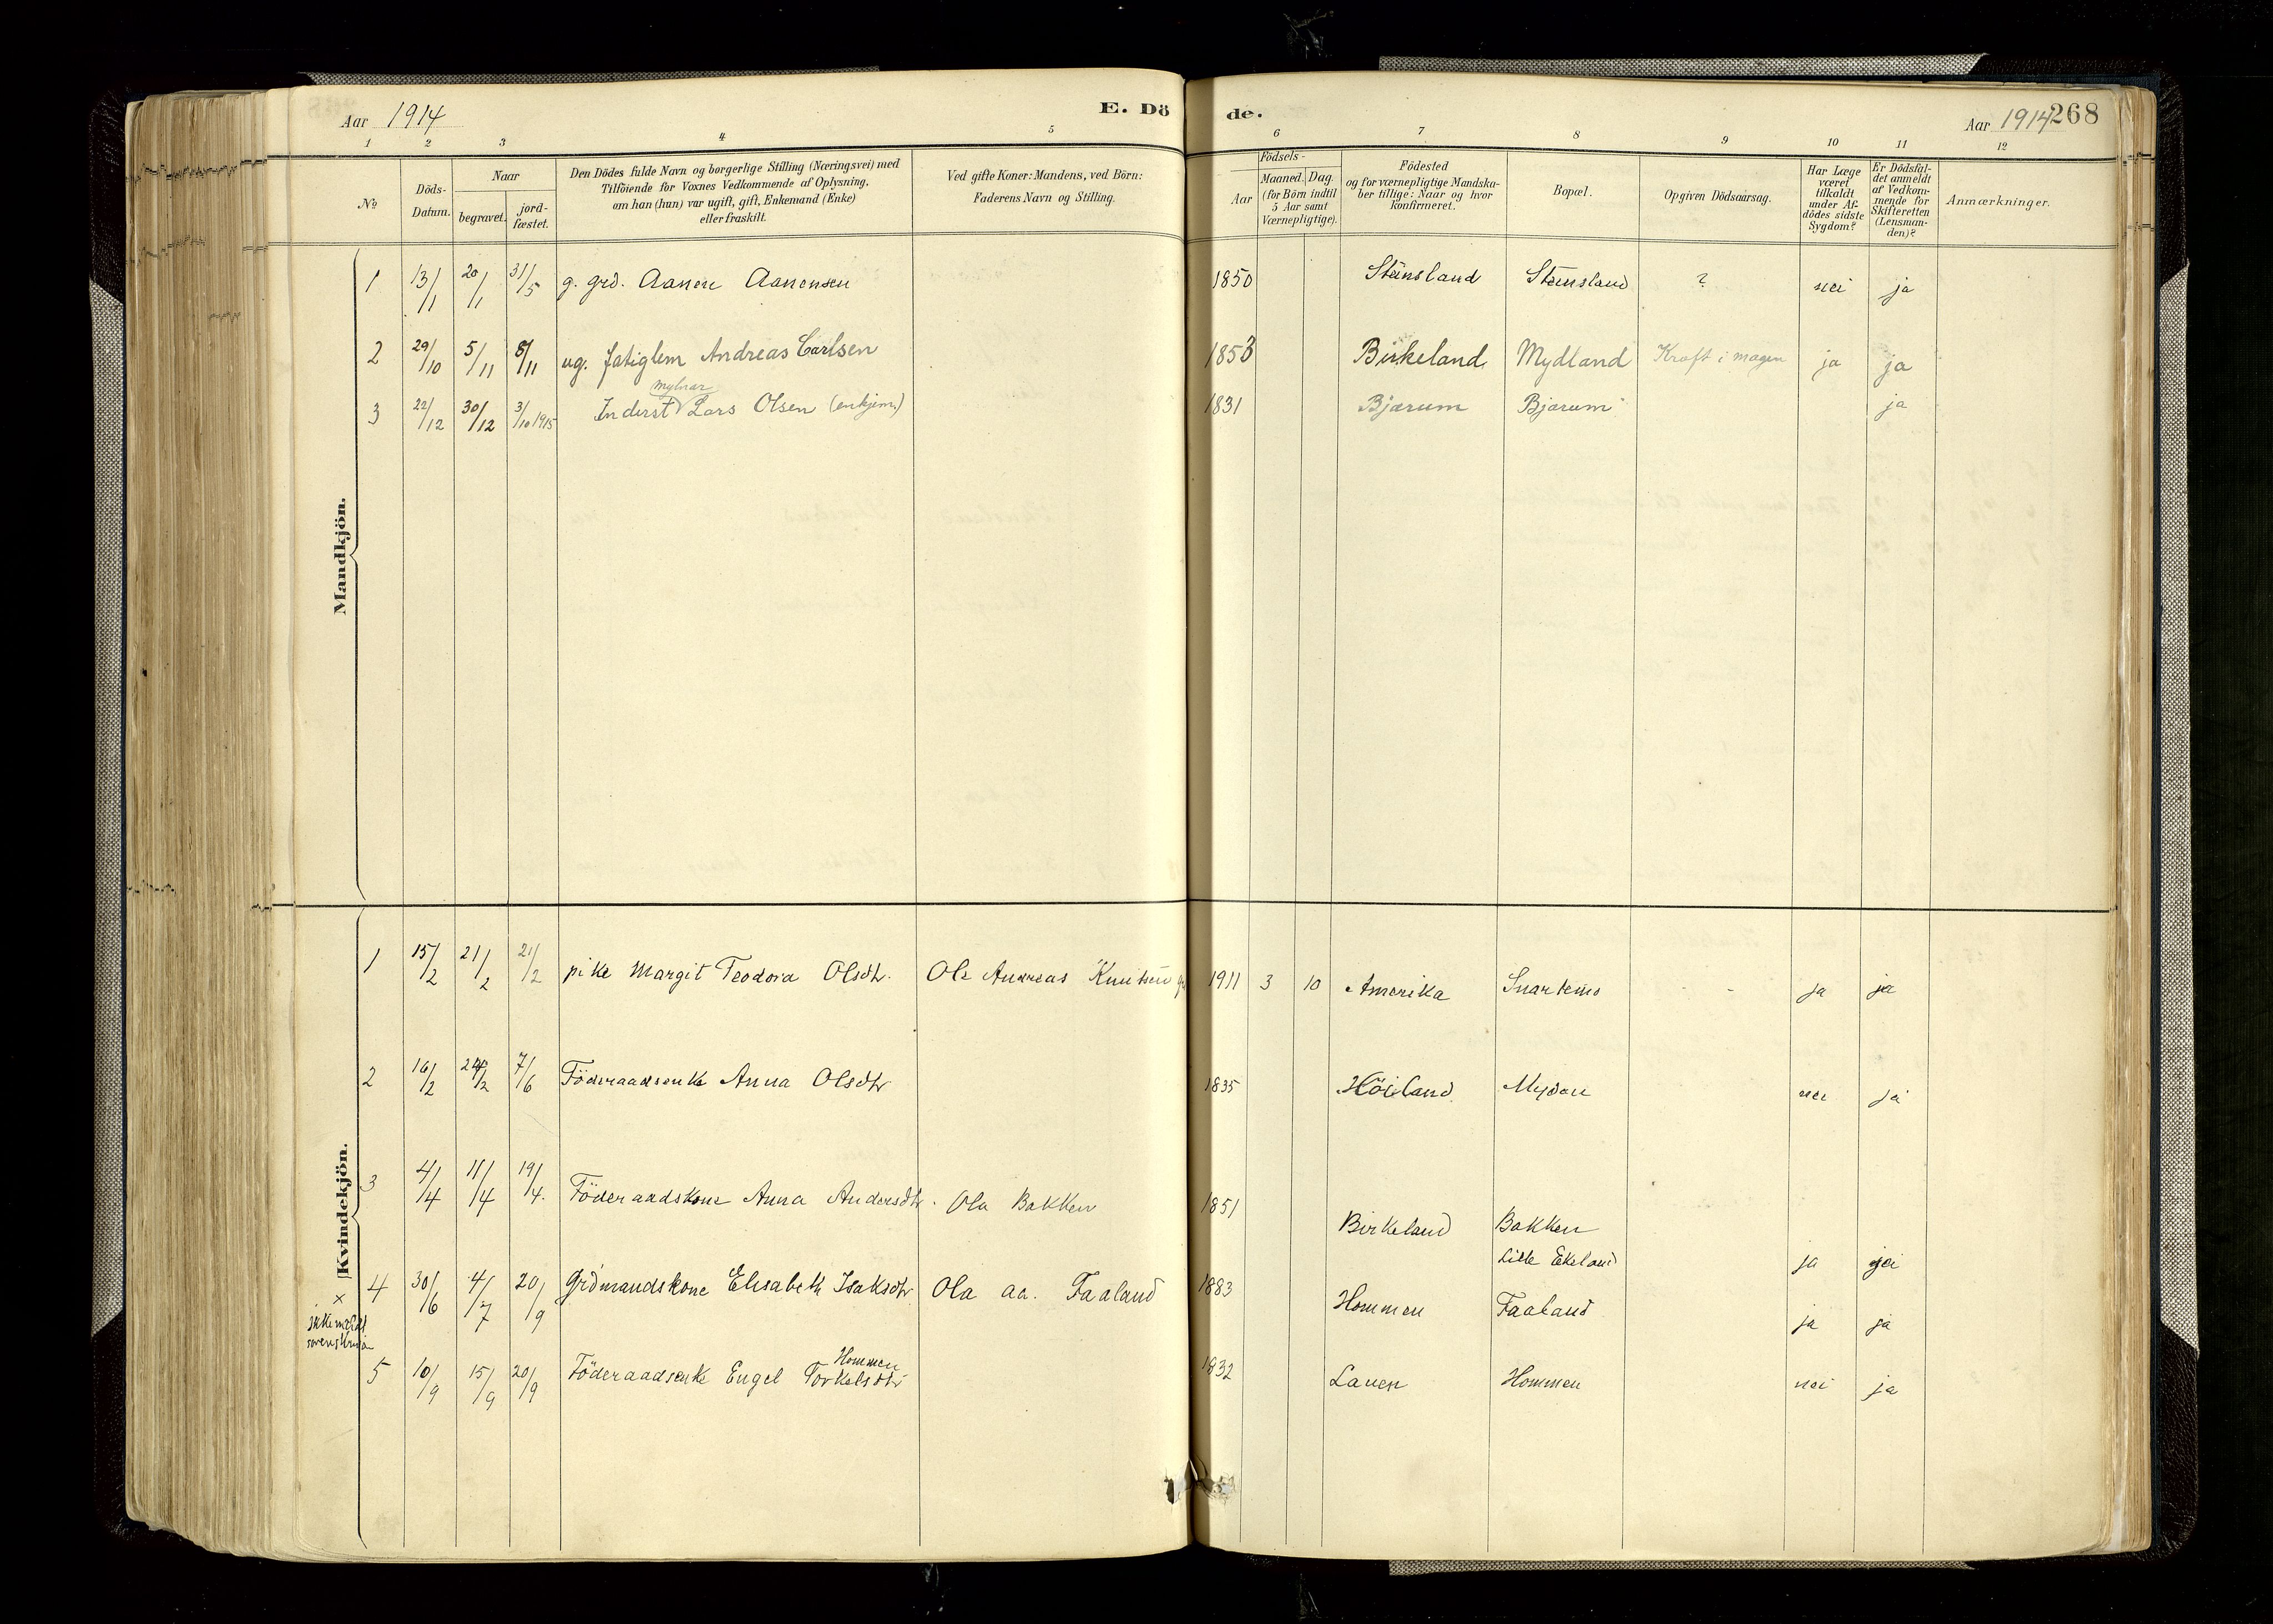 Aar 1914
E. Dö de.
Aar 1914 268
1 2 3 4 5 6 7 8 9 10 11 12
No
Döds-Datum.
Naar
begravet.
jord-fæstet.
Den Dödes fulde Navn og borgerlige Stilling (Næringsvei) med
Tilföiende for Voxnes Vedkommende af Oplysning,
om han (hun) var ugift, gift, Enkemand (Enke)
eller fraskilt.
Ved gifte Koner: Mandens, ved Börn:
Faderens Navn og Stilling.
Födsels-
Aar
Maaned. Dag.
(for Börn indtil
5 Aar samt
Værnepligtige).
Födested
og for værnepligtige Mandska-
ber tillige: Naar og hvor
konfirmeret.
Bopæl.
Opgiven Dödsaarsag.
Har Læge
været
tilkaldt
under Af-
dödes sidste
Sygdom?
Er Dödsfal-
det anmeldt
af Vedkom-
mende for
Skifteretten
(Lensman-
den)?
Anmærkninger.
Mandkjön.
1 13/1 20/1 31/5 g. grd. Aanen Aanensen 1850 Stensland Stensland ? nei ja
2 29/10 5/11 8/11 ug. fatiglem Andreas Carlsen 1853 Birkeland Mydland Kræft i magen ja ja
mylnar
3 22/12 30/12 3/10 1915 Inderst Lars Olsen (enkjem.) 1831 Bjærum Bjærum ja
Kvindekjön.
1 15/2 21/2 21/2 pike Margit Teodora Olsdtr. Ole Andreas Knutsen 1911 3 10 Amerika Snartemo - ja ja
2 16/2 24/2 7/6 Föderaadsenke Anna Olsdtr 1835 Höiland nei ja
3 4/4 11/4 19/4. Föderaadskone Anna Andersdtr. Ola Bakken 1851 Birkeland Bakken
Lille Ekeland ja
4 30/6 4/7 20/9 Grdmandskone Elisabeth Isaksdtr Ola Aa. Faaland 1883 Hommen Faaland ja ja
×
ikke meldt
Hommen
5 10/9 15/9 20/9 Föderaadsenke Engel Torkelsdtr 1832 Lauen Hommen nei ja